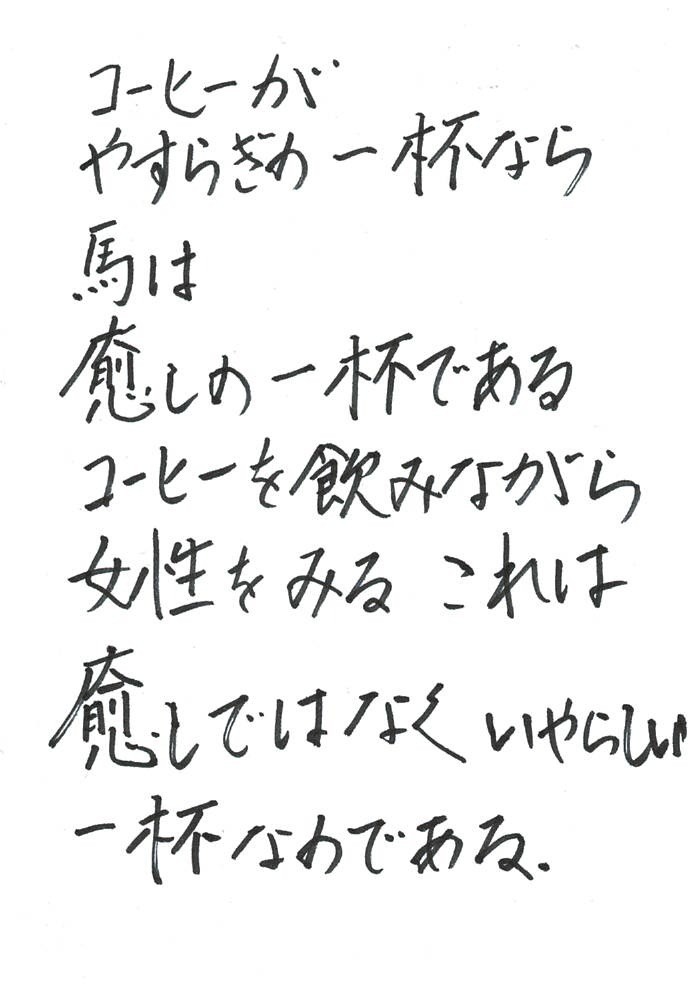 コーヒーが
やすらぎの一杯なら
馬は
癒しの一杯である
コーヒーを飲みながら
女性をみる これは
癒しではなく いやらしい
一杯なのである.